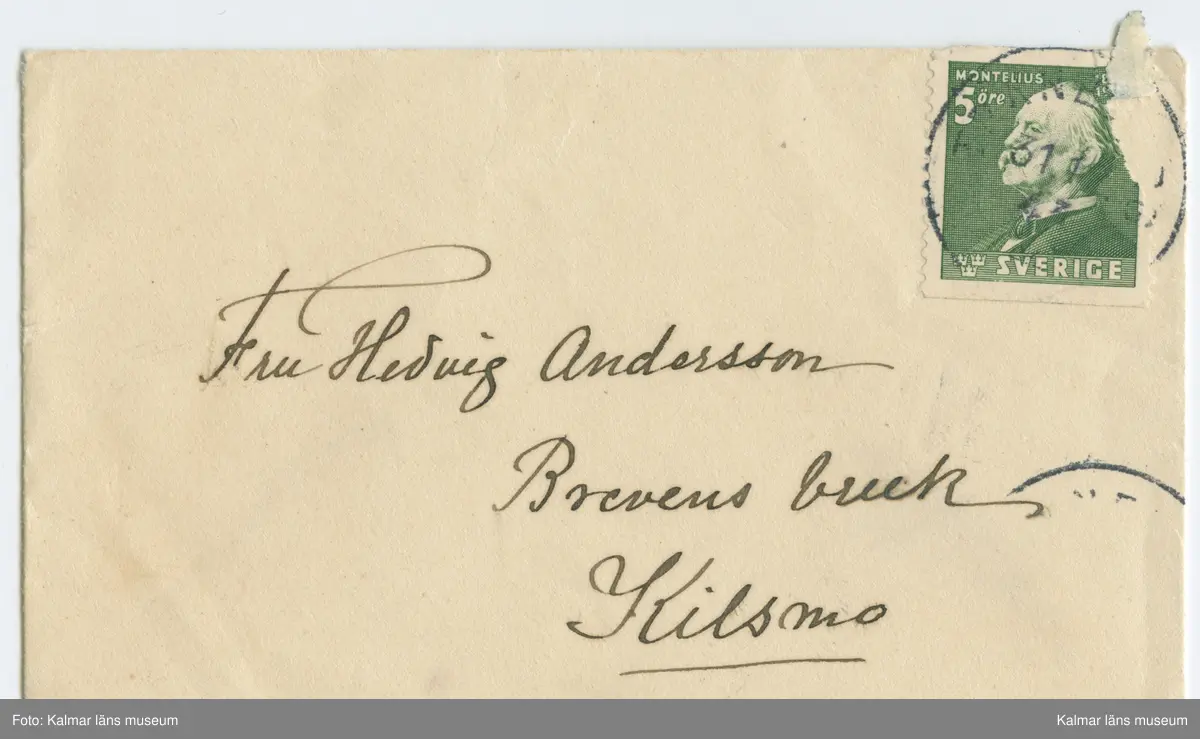 MONTELIUS
5 öre
31
SVERIGE
Fru Hedvig Andersson
Brevens bruk
Kilsmo
Foto: Kalmar läns museum
Kalmar läns museum